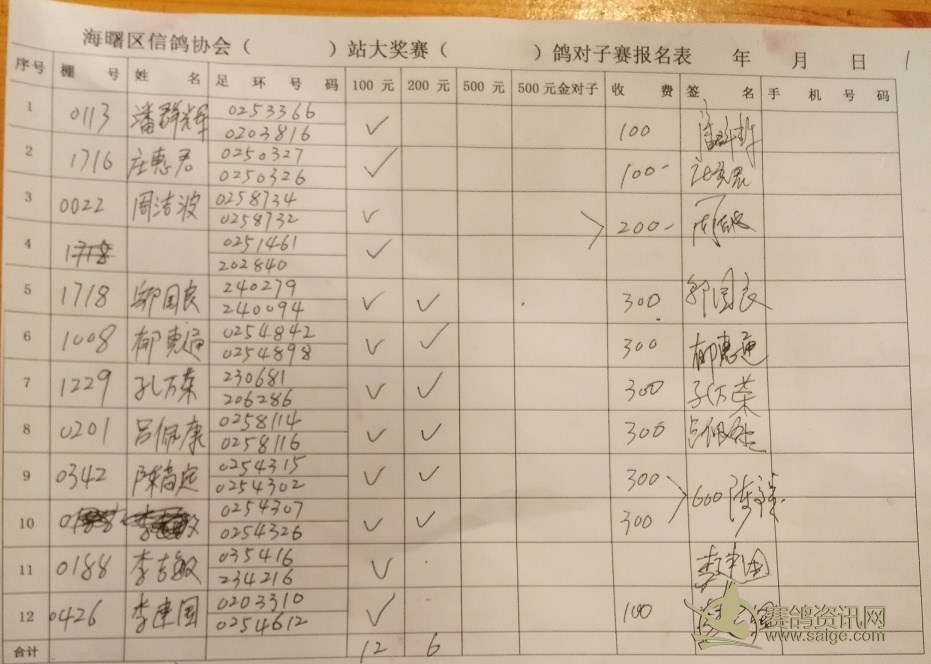 海曙区信鸽协会（ ）站大奖赛（ ）鸽对子赛报名表 年 月 日 1
序号 棚号 姓名 足环号码 100元 200元 500元 500元金对子 收费 签名 手机号码
1 0113 潘群辉 0253366 ✓ 100
0203816
2 1716 庄惠君 0250327 ✓ 100-
0250326
3 0022 周洁波 0258734 ✓ 200-
0258732
4 1718 0251461 ✓
202840
5 1718 邬国良 240279 ✓ ✓ 300 邬国良
240094
6 1008 郁惠通 0254842 ✓ ✓ 300 郁惠通
0254898
7 1229 孔万荣 230681 ✓ ✓ 300 孔万荣
206286
8 0201 吕佩康 0258114 ✓ ✓ 300 吕佩康
0258116
9 0342 陈 定 0254315 ✓ ✓ 300
0254302
600
10 0254307 ✓ ✓ 300
0254326
11 0188 李吉敏 035416 ✓ 李建国
234216
12 0426 李建国 0203310 ✓ 100
0254612
合计 12 6
赛鸽资讯网
www.saige.com